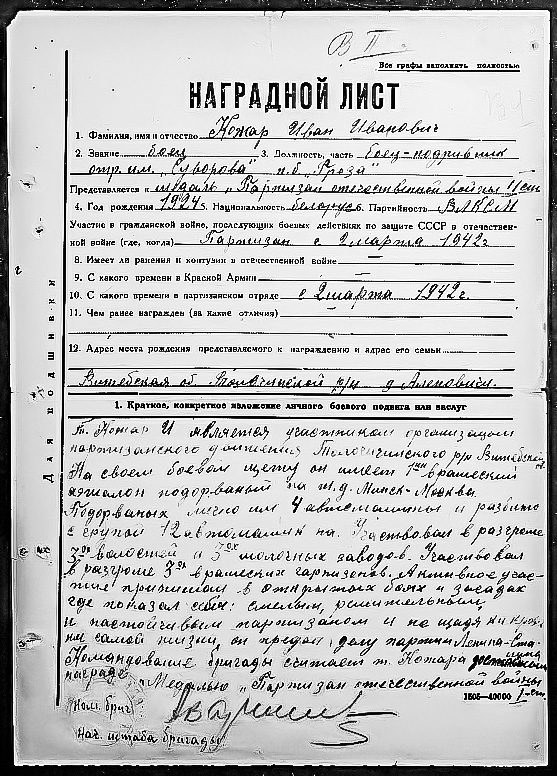 В II
Все графы заполнять полностью
НАГРАДНОЙ ЛИСТ
1. Фамилия, имя и отчество Кожар Иван Иванович
2. Звание боец 3. Должность, часть боец-подрывник
отр. им. „Суворова" п.б. „Гроза"
Представляется к медаль „Партизан отечественной войны II ст.
4. Год рождения 1924 5. Национальность белорус 6. Партийность ВЛКСМ
Участие в гражданской войне, последующих боевых действиях по защите СССР в отечествен-
ной войне (где, когда) Партизан с 2 марта 1942 г
8. Имеет ли ранения и контузии в отечественной войне —
9. С какого времени в Красной Армии —
10. С какого времени в партизанском отряде с 2 марта 1942 г.
11. Чем ранее награжден (за какие отличия)
12. Адрес места рождения представляемого к награждению и адрес его семьи
Витебская об. Толочинский р/н д.
Для подшивки
1. Краткое, конкретное изложение личного боевого подвига или заслуг
Т. Кожар И является участником организации
партизанского движения Толочинского р/н Витебской
На своем боевом щету он имеет 1 вражеский
эшалон подорваный на ж.д. Минск-Москва.
Подорваных лично им 4 автомашины и разбито
с групой 12 автомашин на. Участвовал в разгроме
3-ох волостей и 3-ох молочных заводов. Участвовал
в разгроме 3-ох вражеских гарнизонов. Активное учас-
тие принимал в открытых боях и засадах
где показал себя: смелым, решительным,
и настойчивым партизаном и не щадя ни крови
ни самой жизни, он предан делу партии Ленина-Ста
лина
Командование бригады считает т. Кожара достойным
награде „Медалью „Партизан отечественной войны
I-ст.
1505—40000
Ком. бриг
Нач. штаба бригады